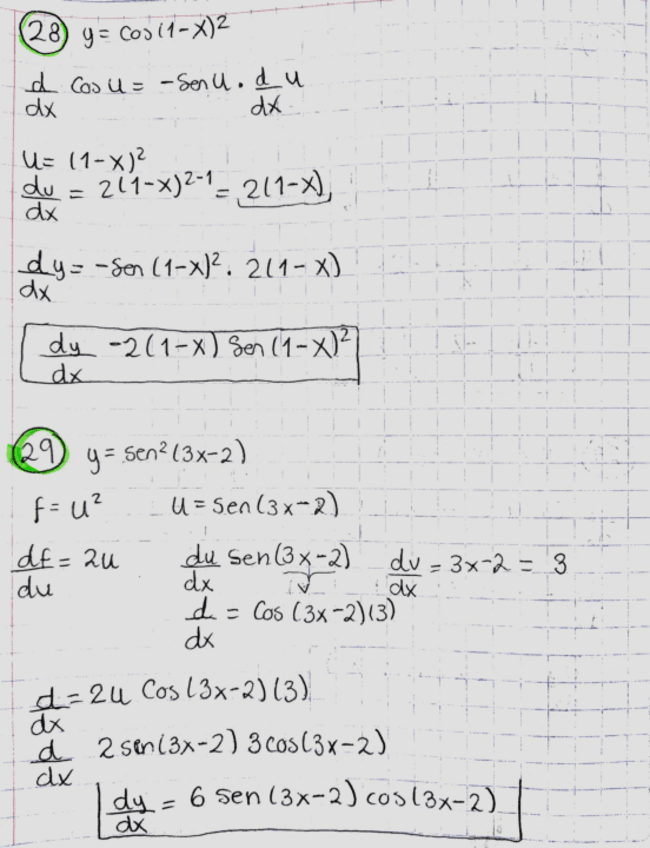 28 y = cos(1-x)²
d/dx cos u = -sen u · d/dx u
u = (1-x)²
du/dx = 2(1-x)²⁻¹ = 2(1-x)
dy/dx = -sen (1-x)² · 2(1-x)
dy/dx -2(1-x) sen (1-x)²
29 y = sen²(3x-2)
f = u² u = sen(3x-2)
df/du = 2u du/dx sen(3x-2) dv/dx = 3x-2 = 3
v
d/dx = cos (3x-2)(3)
d/dx = 2u cos(3x-2)(3)
d/dx 2 sen(3x-2) 3cos(3x-2)
dy/dx = 6 sen (3x-2) cos(3x-2)